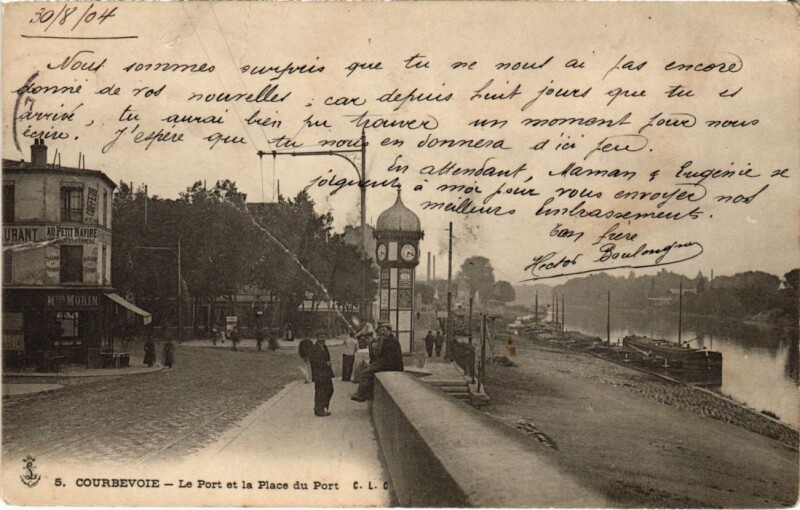 30/8/04
Nous sommes surpris que tu ne nous ai pas encore
donné de vos nouvelles, car depuis huit jours que tu es
arrivé, tu aurai bien pu trouver un moment pour nous
écrire. J'espère que tu nous en donnera d'ici peu.
En attendant, Maman & Eugénie se
joignent à moi pour vous envoyer nos
meilleurs Embrassements.
Ton frère
Hector
URANT AU PETIT NAVIRE
MORIN
5. COURBEVOIE — Le Port et la Place du Port C. L. C